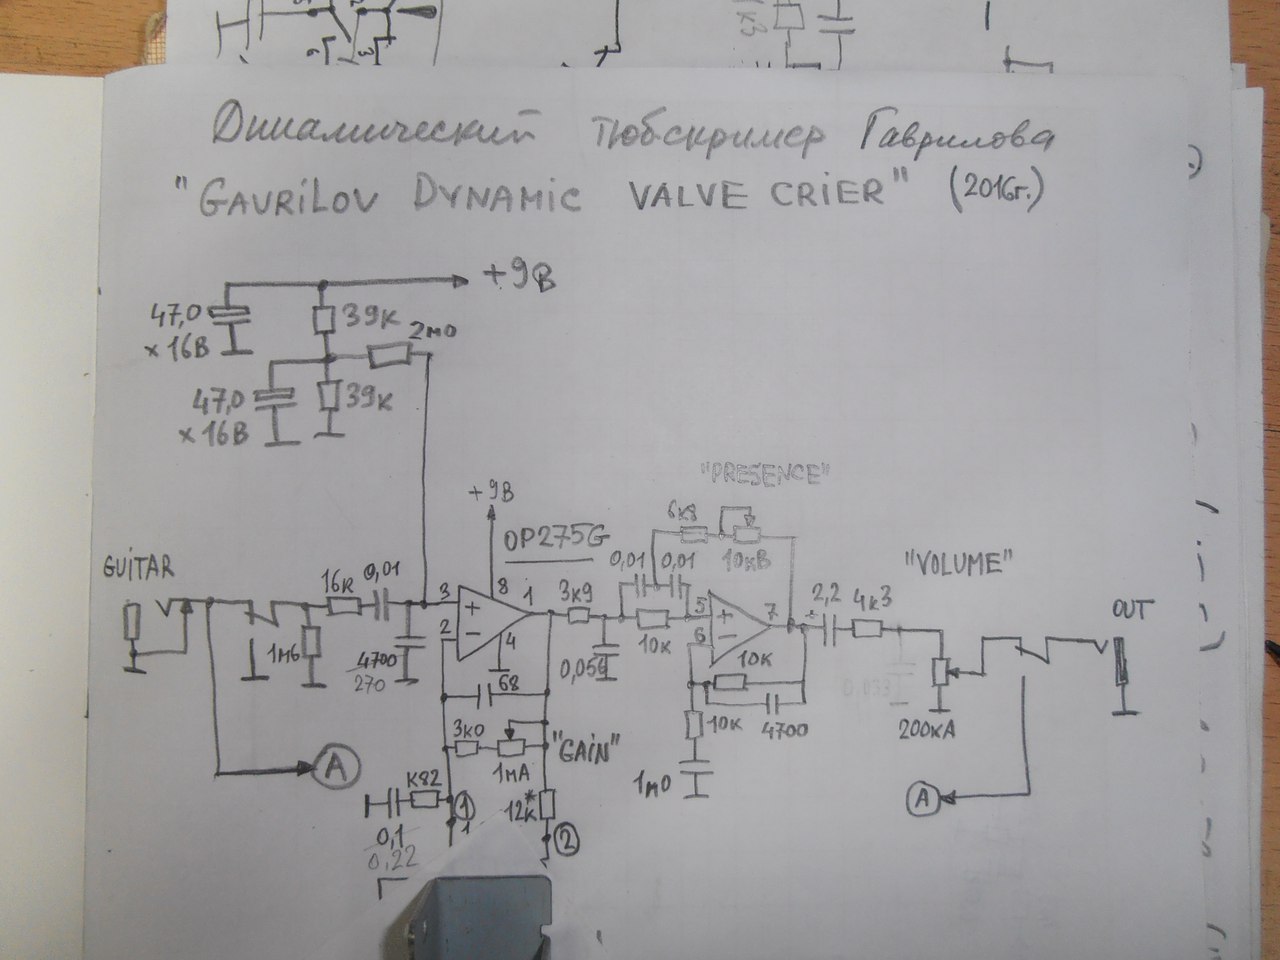 Динамический тюбскример Гаврилова
"GAVRILOV DYNAMIC VALVE CRIER" (2016г.)
+9В
47,0
x 16В
39к
2м0
47,0
x 16В
39к
"PRESENCE"
+9В
OP275G
6к8
10кВ
GUITAR
16к
0,01
3
2
8
1
4
3к9
0,01
0,01
5
6
7
2,2
4к3
"VOLUME"
OUT
1м6
4700
270
68
0,056
10к
10к
10к
4700
0,033
200кА
3к0
1мА
"GAIN"
1м0
A
к82
1
1
12к*
2
A
0,1
0,22
1к3